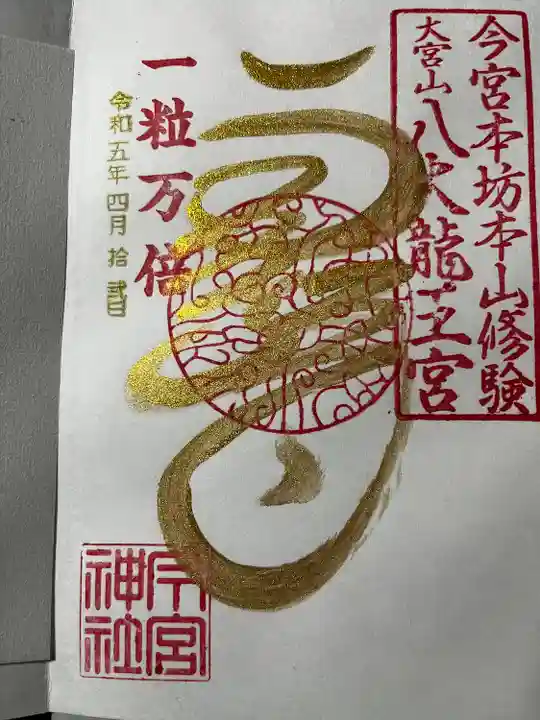 今宮本坊本山修験
大宮山八大龍王宮
一粒万倍
令和五年四月拾弐日
今宮
神社